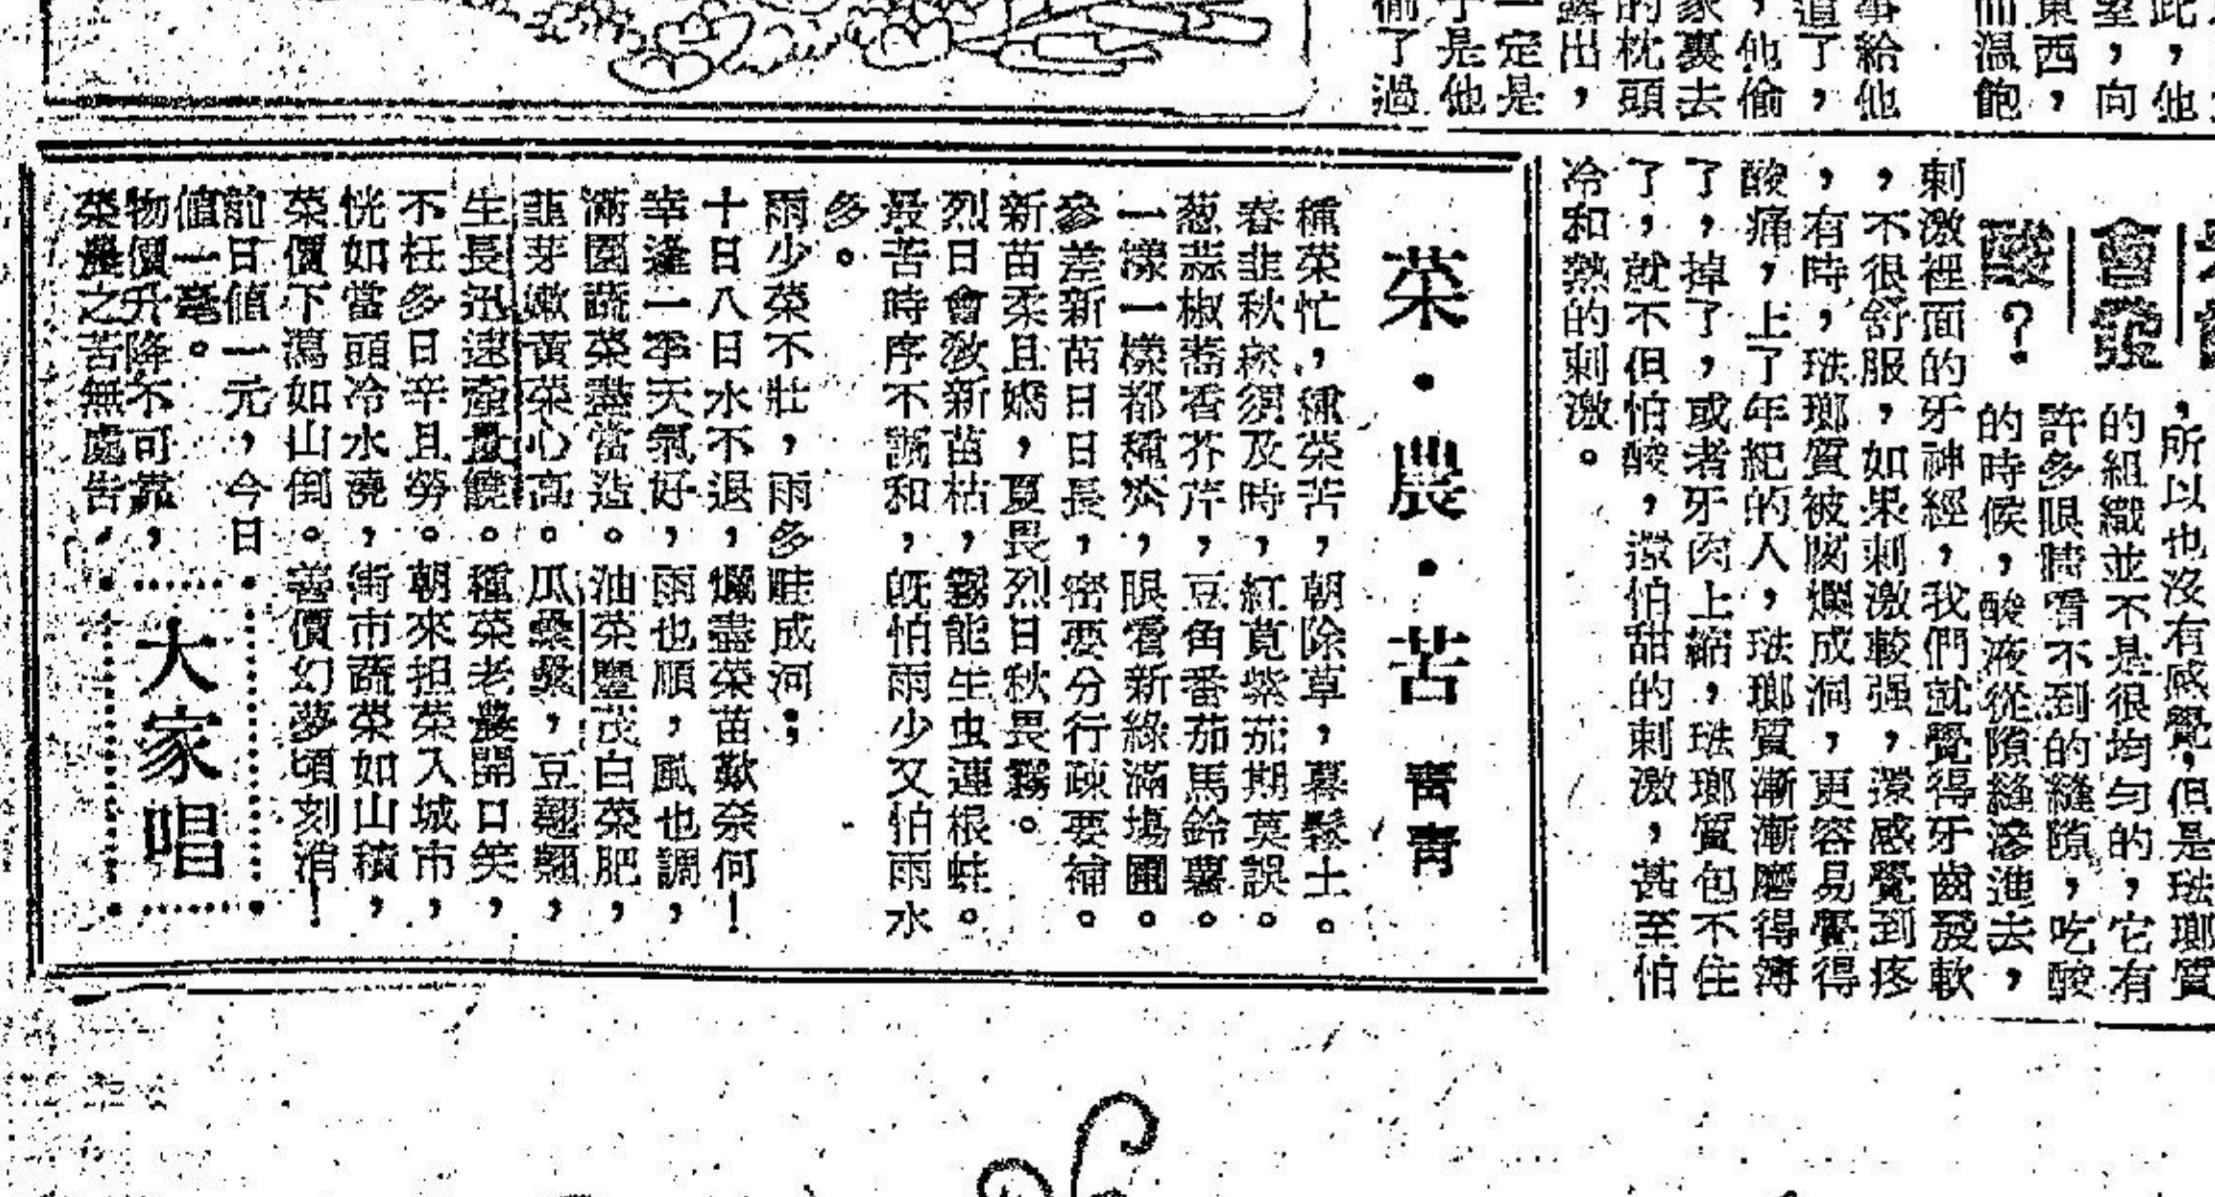 此，他
室，向
東西，
而溫飽
事給他
道了，
，他偷
家裏去
的枕頭
露出，
一定是
于是他
偷了過
，所以也沒有感覺，但是珐瑯質
的組織並不是很均勻的，它有
許多眼睛看不到的縫隙，吃酸
的時候，酸液從隙縫滲進去，
會發
酸？
刺激裡面的牙神經，我們就覺得牙齒發軟
，不很舒服，如果刺激較强，還感覺到疼
，有時，珐瑯質被腐爛成洞，更容易覺得
酸痛，上了年紀的人，珐瑯質漸漸磨得薄
了，掉了，或者牙肉上縮，珐瑯質包不住
了，就不但怕酸，還怕甜的刺激，甚至怕
冷和熱的刺激。
菜·農·苦 青青
種菜忙，種菜苦，朝除草，暮鬆土。
春韭秋菘須及時，紅莧紫茄期莫誤。
葱蒜椒蒿香芥芹，豆角番茄馬鈴薯。
一樣一樣都種齊，眼看新綠滿塲圃。
參差新苗日日長，密要分行疎要補。
新苗柔且嬌，夏畏烈日秋畏霧。
烈日會敎新苗枯，霧能生虫連根蛀。
最苦時序不調和，旣怕雨少又怕雨水
多。
雨少菜不壯，雨多畦成河；
十日八日水不退，爛盡菜苗歎奈何！
幸逢一季天氣好，雨也順，風也調，
滿園蔬菜盡當造。油菜豐茂白菜肥，
韭芽嫩黃菜心高。瓜纍纍，豆翹翹，
生長迅速產量饒。種菜老農開口笑，
不枉多日辛且勞。朝來担菜入城市，
恍如當頭冷水澆，街市蔬菜如山積，
菜價下瀉如山倒。善價幻夢頃刻消！
前日值一元，今日
值一毫。
物價升降不可靠，
菜農之苦無處告，
大家唱